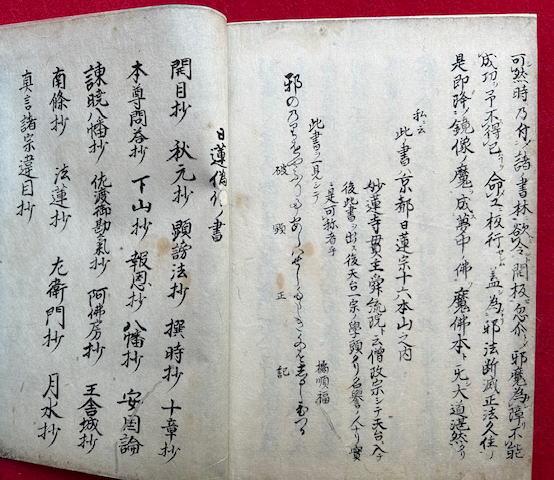 可然時乃付諸書林欲令開板忽爾邪魔為障不能
成功予不得已命工板行蓋為邪法断滅正法久住
是即降鏡像魔成夢中佛魔佛本元大道湛然
私云
此書ハ京都日蓮宗十六本山之内
妙蓮寺貫主舜統院ト云僧改宗シテ天台ニ入テ
後此書ヲ出ス後天台一宗ノ學頭タリ名誉ノ人ナリ實
ニ是可称者乎
此書ヲ一見シテ
橘順福
邪の
破顕正記
日蓮偽作ノ書
開目抄 秋元抄 顕謗法抄 撰時抄 十章抄
本尊問答抄 下山抄 報恩抄 八幡抄 安国論
諌暁八幡抄 佐渡御勘氣抄 阿佛房抄 王舎城抄
南條抄 法蓮抄 左衛門抄 月水抄
真言諸宗違目抄